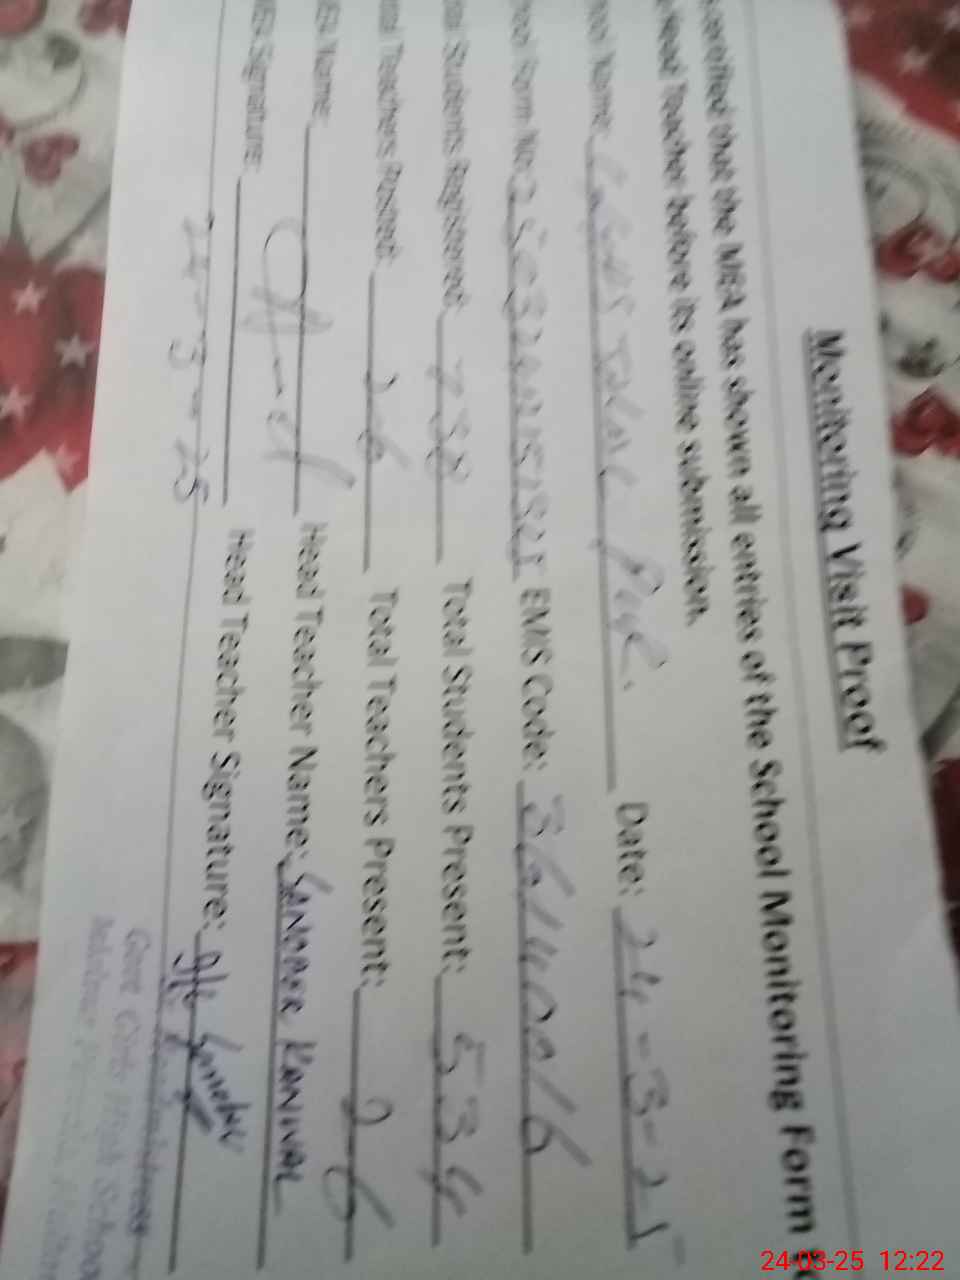 Monitoring Visit Proof
certified that the MEA has shown all entries of the School Monitoring Form to
Head Teacher before its online submission.
School Name: GGHS Date: 24-3-25
School Form No: EMIS Code: 36140016
Total Students Registered: 738 Total Students Present: 534
Total Teachers Posted: 26 Total Teachers Present: 26
MEA Name: Head Teacher Name: SANOBER KANWAL
MEA Signature: Head Teacher Signature:
24-3-25
Govt Girls High School
24-03-25 12:22